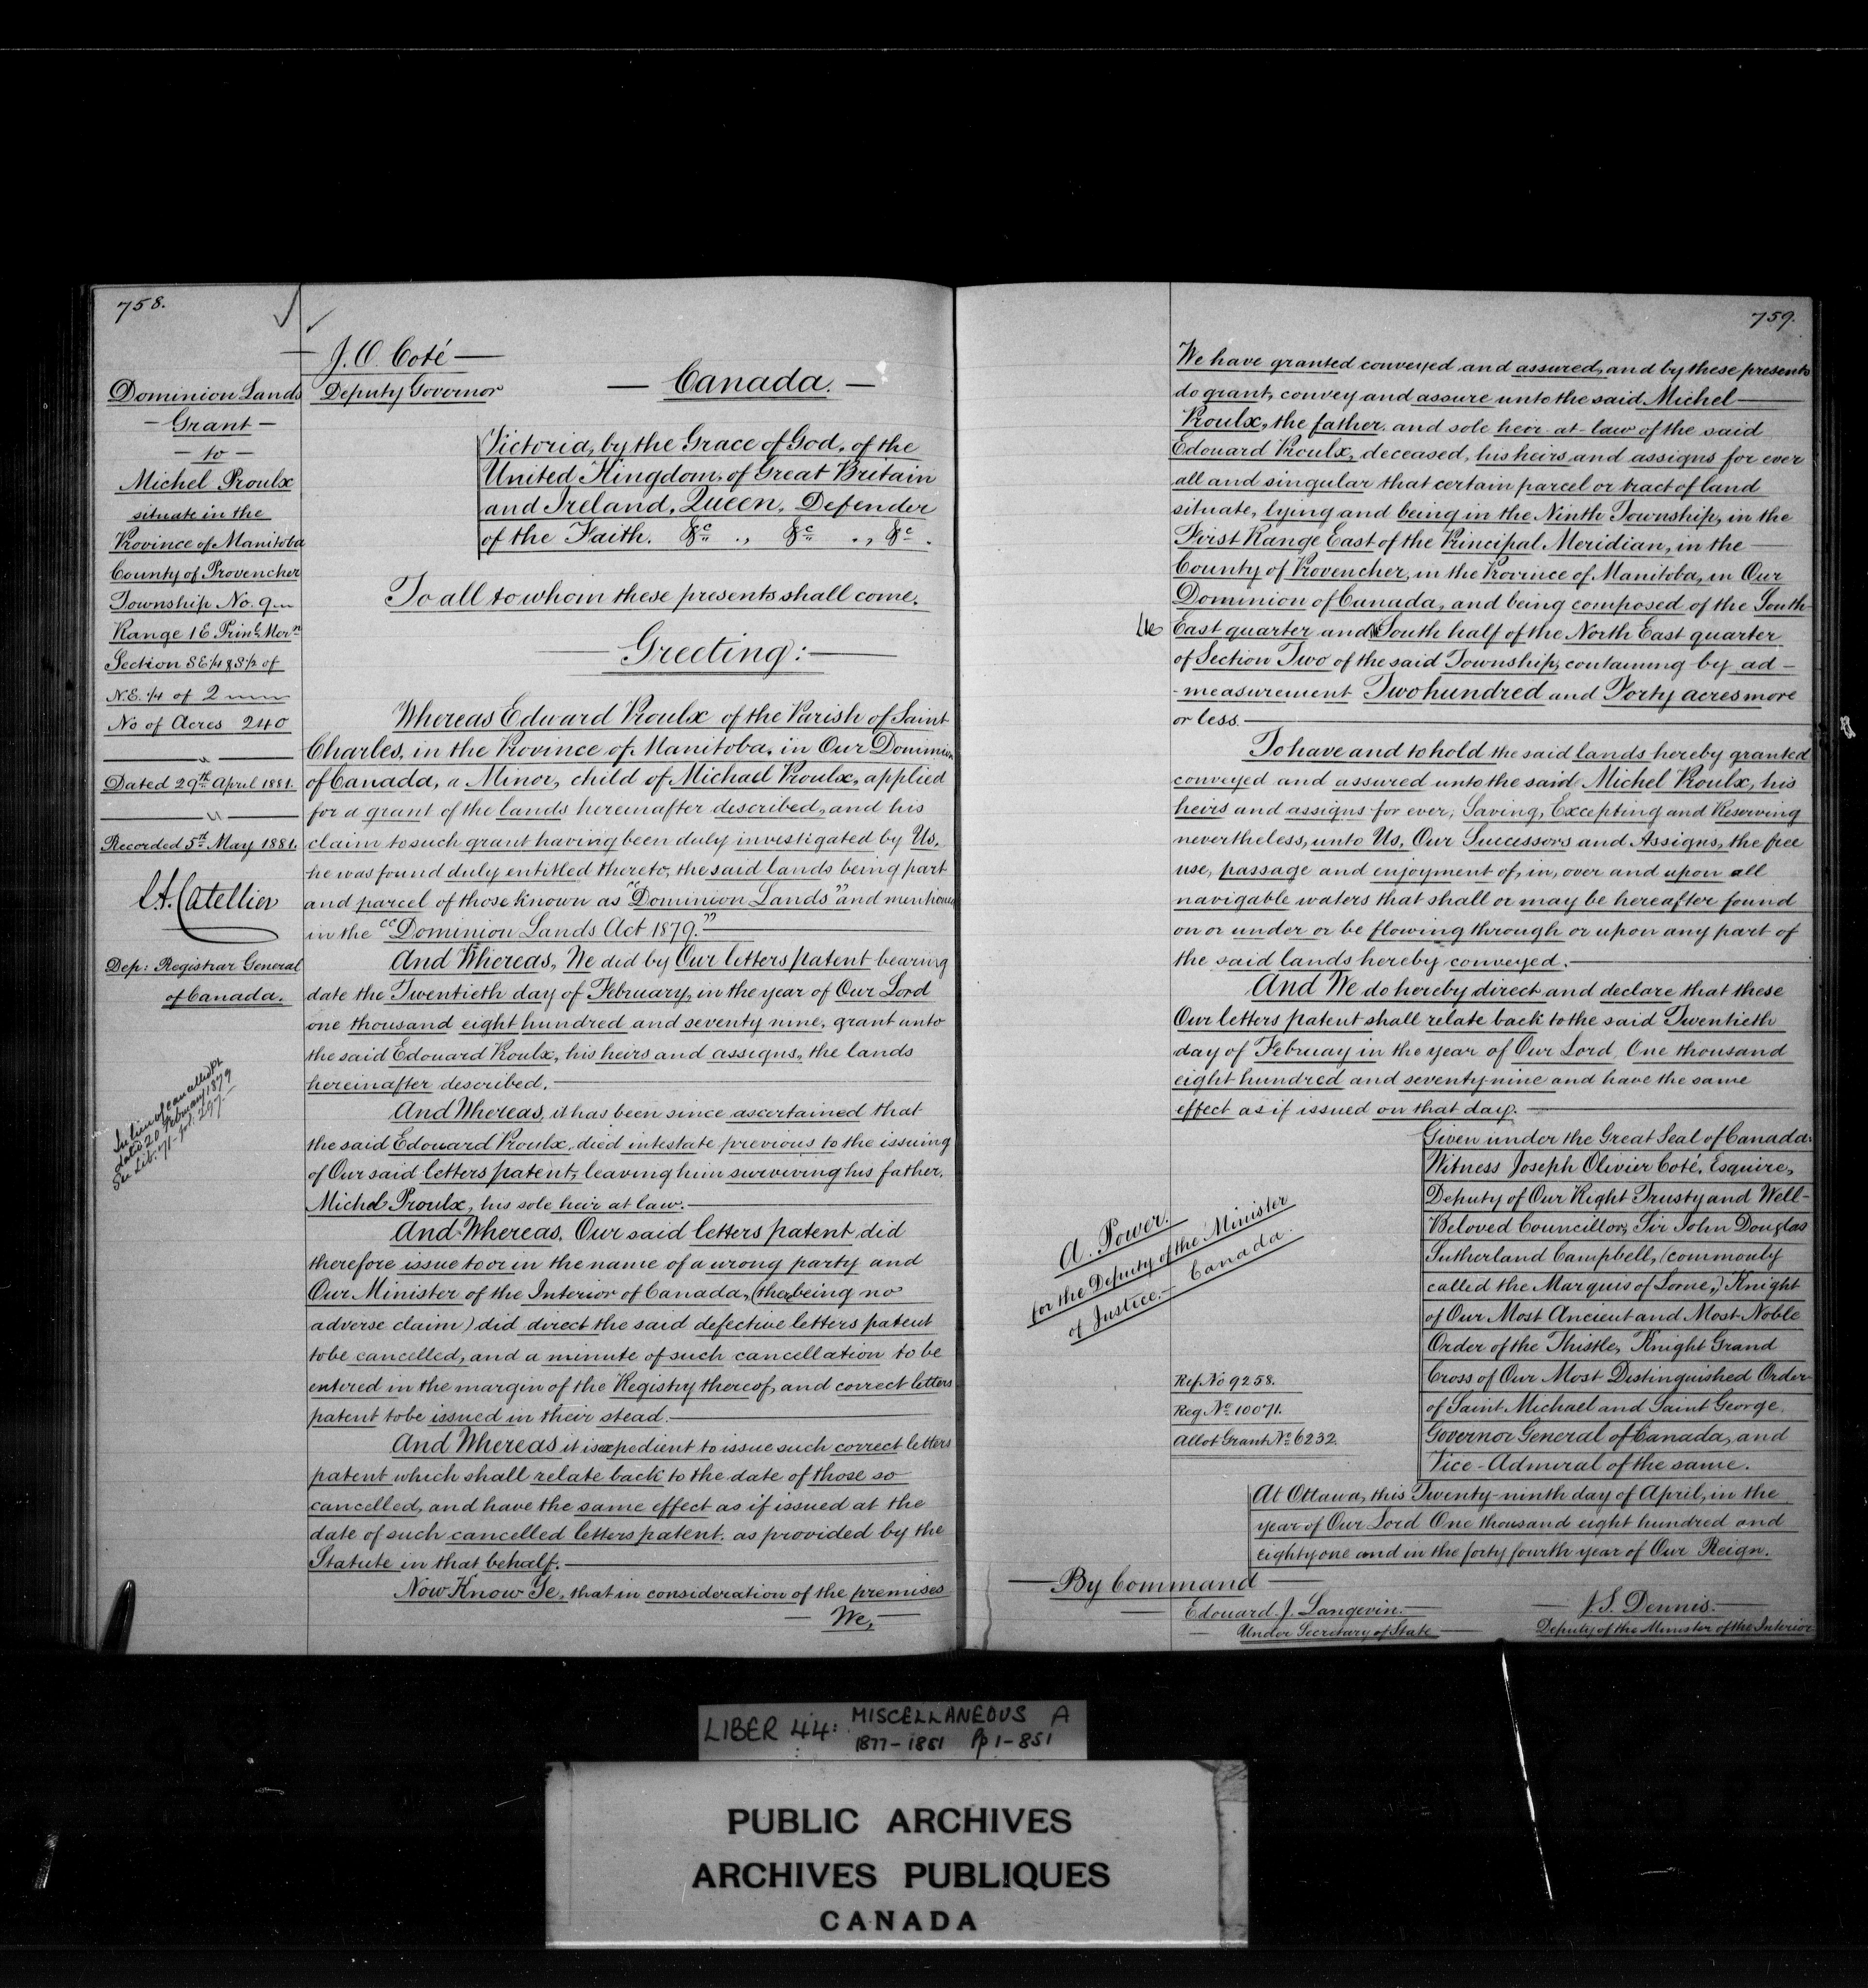 758.
J. O. Coté
Deputy Governor
— Canada. —
Dominion Lands
— Grant —
— to —
Michel Proulx
situate in the
Province of Manitoba
County of Provencher
Township No. 9
Range 1 E Prin.l Mer.n
Section S E 1/4 & S 1/2 of
N.E. 1/4 of 2
No of Acres 240
Dated 29th April 1881.
Recorded 5th May 1881.
L. A. Catellier
Dep: Registrar General
of Canada.
In lieu of cancelled Pt.
dated 20 February 1879
See Lib. 71 - fol. 297.
Victoria, by the Grace of God, of the
United Kingdom, of Great Britain
and Ireland, Queen, Defender
of the Faith. &c ., &c ., &c .
To all to whom these presents shall come.
Greeting:
Whereas Edward Proulx of the Parish of Saint
Charles, in the Province of Manitoba, in Our Dominion
of Canada, a Minor, child of Michael Proulx, applied
for a grant of the lands hereinafter described, and his
claim to such grant having been duly investigated by Us,
he was found duly entitled thereto, the said lands being part
and parcel of those known as "Dominion Lands" and mentioned
in the "Dominion Lands Act 1879."
And Whereas, We did by Our letters patent bearing
date the Twentieth day of February, in the year of Our Lord
one thousand eight hundred and seventy nine, grant unto
the said Edouard Proulx, his heirs and assigns, the lands
hereinafter described.
And Whereas, it has been since ascertained that
the said Edouard Proulx, died intestate previous to the issuing
of Our said letters patent, leaving him surviving his father,
Michel Proulx, his sole heir at law.
And Whereas, Our said letters patent did
therefore issue to or in the name of a wrong party and
Our Minister of the Interior of Canada, (there being no
adverse claim) did direct the said defective letters patent
to be cancelled, and a minute of such cancellation to be
entered in the margin of the Registry thereof, and correct letters
patent to be issued in their stead.
And Whereas it is expedient to issue such correct letters
patent which shall relate back to the date of those so
cancelled, and have the same effect as if issued at the
date of such cancelled letters patent, as provided by the
Statute in that behalf.
Now Know Ye, that in consideration of the premises
We,
759.
We have granted conveyed and assured, and by these presents
do grant, convey and assure unto the said Michel
Proulx, the father and sole heir-at-law of the said
Edouard Proulx, deceased, his heirs and assigns for ever
all and singular that certain parcel or tract of land
situate, lying and being in the Ninth Township, in the
First Range East of the Principal Meridian, in the
County of Provencher, in the Province of Manitoba, in Our
Dominion of Canada, and being composed of the South
East quarter and South half of the North East quarter
of Section Two of the said Township, containing by ad-
-measurement Two hundred and Forty acres more
or less.
To have and to hold the said lands hereby granted
conveyed and assured unto the said Michel Proulx, his
heirs and assigns for ever; Saving, Excepting and Reserving
nevertheless, unto Us, Our Successors and Assigns, the free
use, passage and enjoyment of, in, over and upon all
navigable waters that shall or may be hereafter found
on or under or be flowing through or upon any part of
the said lands hereby conveyed.
And We do hereby direct and declare that these
Our letters patent shall relate back to the said Twentieth
day of Februay in the year of Our Lord, One thousand
eight hundred and seventy-nine and have the same
effect as if issued on that day.
Given under the Great Seal of Canada:
Witness Joseph Olivier Coté, Esquire,
Deputy of Our Right Trusty and Well-
Beloved Councillor, Sir John Douglas
Sutherland Campbell, (commonly
called the Marquis of Lorne,) Knight
of Our Most Ancient and Most Noble
Order of the Thistle, Knight Grand
Cross of Our Most Distinguished Order
of Saint Michael and Saint George
Governor General of Canada, and
Vice-Admiral of the same.
A. Power.
for the Deputy of the Minister
of Justice.— Canada
Ref. No 9258.
Reg No 10071.
Allot Grant No 6232.
At Ottawa, this Twenty-ninth day of April, in the
year of Our Lord One thousand eight hundred and
eighty one and in the forty fourth year of Our Reign.
By Command
Edouard. J. Langevin.
Under Secretary of State
J. S. Dennis.
Deputy of the Minister of the Interior
LIBER 44: MISCELLANEOUS A
1877-1881 Pp 1-851
PUBLIC ARCHIVES
ARCHIVES PUBLIQUES
CANADA